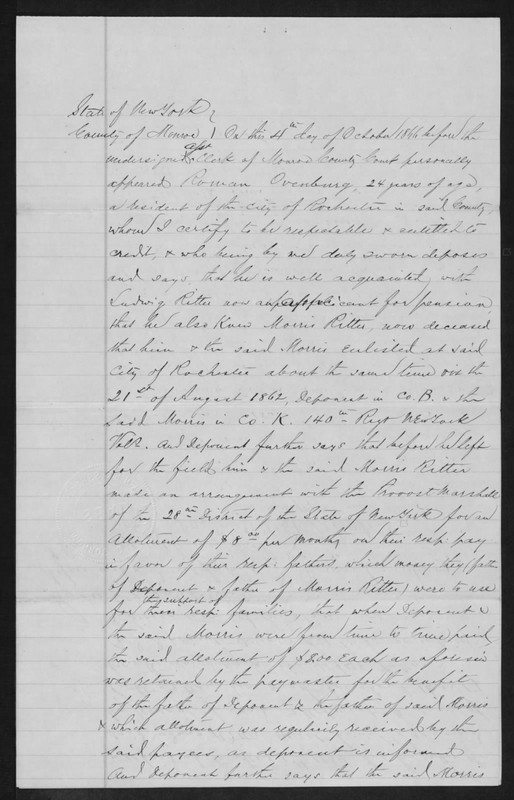 State of New York }
County of Monroe } On this 4th day of October 1866 before the
undersigned Clerk of Monroe County Court personally
appeared Roman Ovenburg, 24 years of age,
a resident of the City of Rochester in said County,
whom I certify to be respectable & entitled to
credit, & who being by me duly sworn deposes
and says, that he is well acquainted with
Ludwig Ritter now applicant for pension,
that he also knew Morris Ritter, now deceased
that him & the said Morris enlisted at said
City of Rochester about the same time viz the
21st of August 1862, Deponent in Co. B. & the
Said Morris in Co. K. 140th Regt New York
Vols. And Deponent further says that before he left
for the field him & the said Morris Ritter
made an arrangement with the Provost Marshall
of the 28th District of the State of New York for an
allotment of $8 00 per month on their resp: pay
in favor of their resp: fathers, which money they (father
of Deponent & father of Morris Ritter) were to use
for the support of their resp: families, that when Deponent &
the said Morris were from time to time paid
the said allotment of $8.00 each as aforesaid
was retained by the paymaster for the benefit
of the father of Deponent & the father of said Morris
& which allotment was regularly received by the
said payees, as deponent is informed
And deponent further says that the said Morris